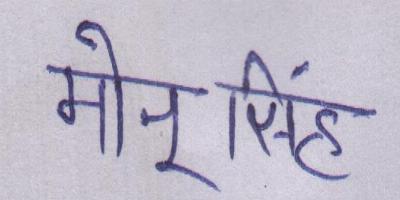 मोनू सिंह